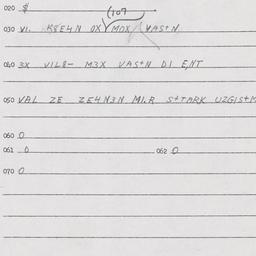 020 $
(107
030 VI. K8E4N OX MOX VASTN
040 3X VIL8- M3X VASTN DI E,NT
050 VAL ZE ZE4N3N MI.R STTARK UZGIST
060 0
061 0 062 0
070 0